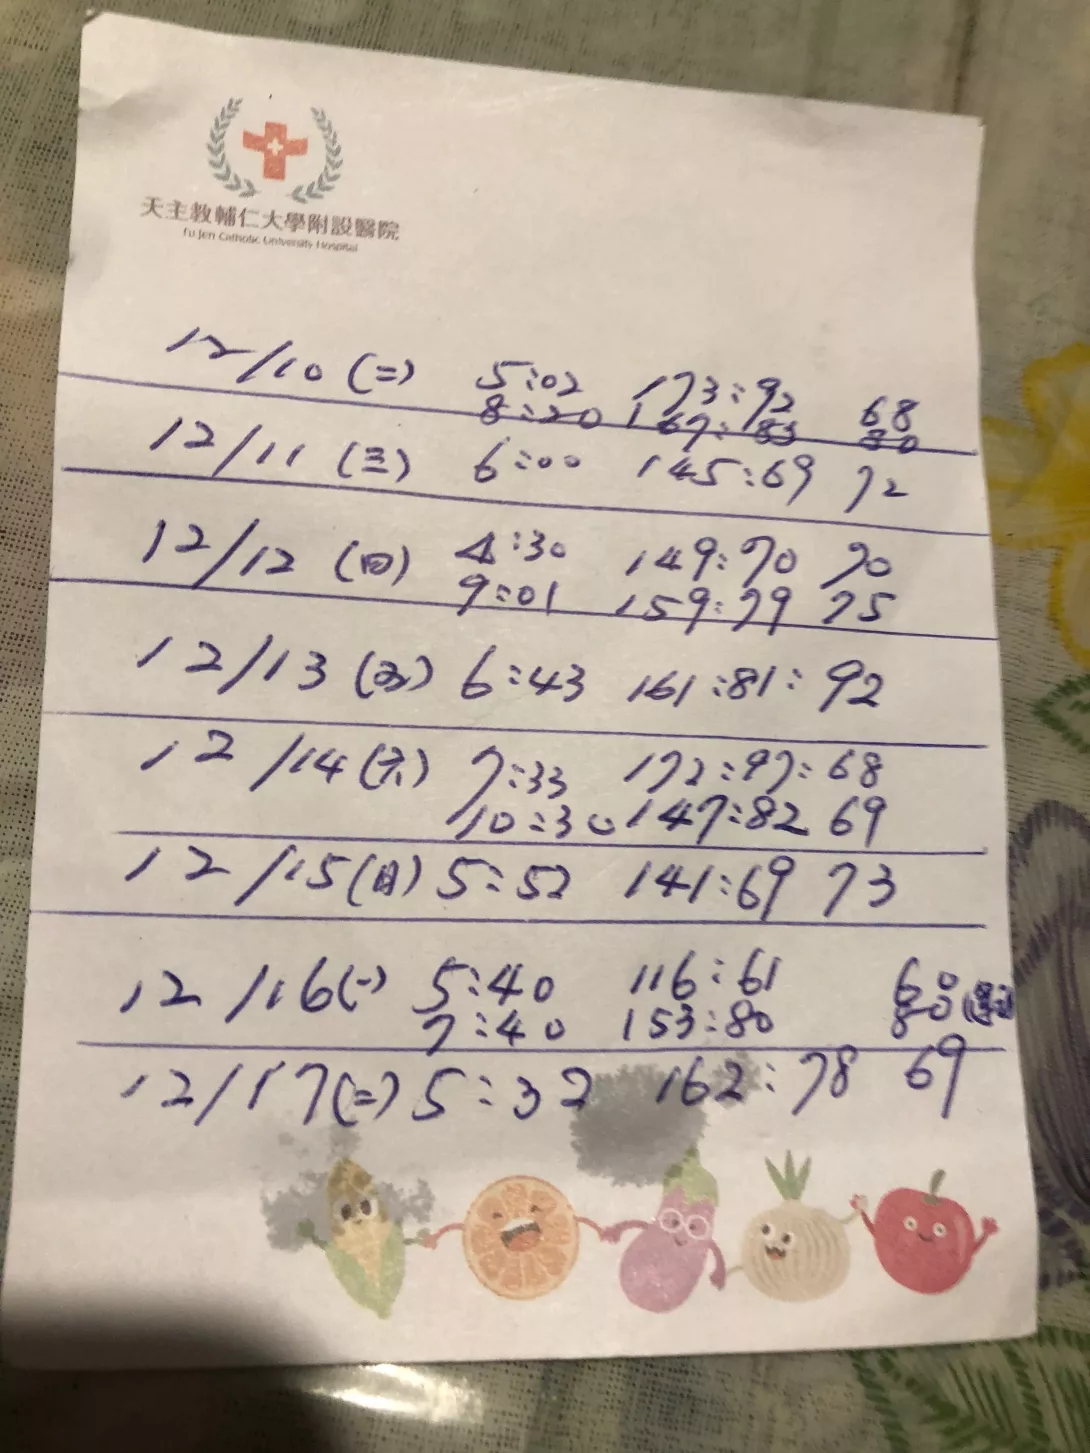 天主教輔仁大學附設醫院
Fu Jen Catholic University Hospital
12/10 (二) 5:02 173:92 68
8:20 167:83 80
12/11 (三) 6:00 145:69 72
12/12 (四) 4:30 149:70 70
9:01 159:79 75
12/13 (五) 6:43 161:81: 92
12/14 (六) 7:33 172:97: 68
10:30 147:82 69
12/15 (日) 5:52 141:69 73
12/16 (一) 5:40 116:61 60
7:40 153:80 80
12/17 (二) 5:32 162:78 69